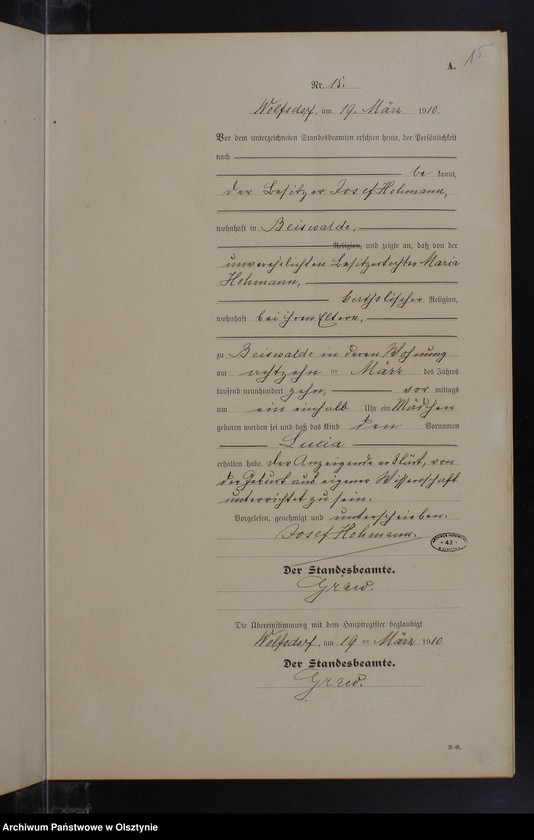 15
A.
Nr. 15.
Wolfsdorf, am 19. März 1910.
Vor dem unterzeichneten Standesbeamten erschien heute, der Persönlichkeit
nach
be kannt,
der Besitzer Josef Hohmann,
wohnhaft in Beiswalde,
Religion, und zeigte an, daß von der
unverehelichten Besitzertochter Maria
Hohmann,
katholischer Religion,
wohnhaft bei ihren Eltern,
zu Beiswalde in deren Wohnung
am achtzehn ten März des Jahres
tausend neunhundert zehn, vor mittags
um ein einhalb Uhr ein Mädchen
geboren worden sei und daß das Kind den Vornamen
Lucia
erhalten habe. Der Anzeigende erklärt, von
der Geburt aus eigener Wissenschaft
unterrichtet zu sein.
Vorgelesen, genehmigt und unterschrieben.
Josef Hohmann.
42
Der Standesbeamte.
Graw.
Die Übereinstimmung mit dem Hauptregister beglaubigt
Wolfsdorf, am 19 ten März 1910.
Der Standesbeamte.
Graw.
Archiwum Państwowe w Olsztynie